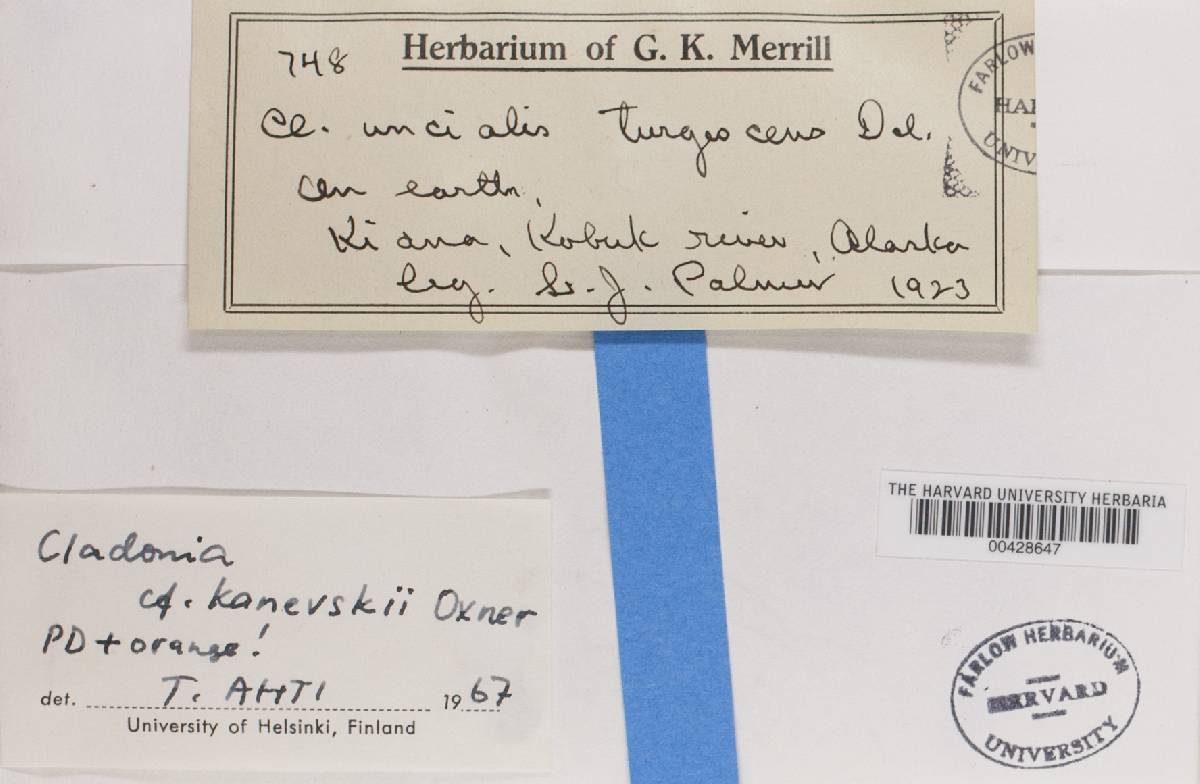 748 Herbarium of G. K. Merrill
Cl. uncialis turgescens Del.
on earth,
Kiana, Kobuk river, Alaska
leg. L. J. Palmer 1923
FARLOW
HAR
UNIV
THE HARVARD UNIVERSITY HERBARIA
00428647
Cladonia
cf. kanevskii Oxner
PD + orange!
det. T. AHTI 1967
University of Helsinki, Finland
FARLOW HERBARIUM
HARVARD
UNIVERSITY